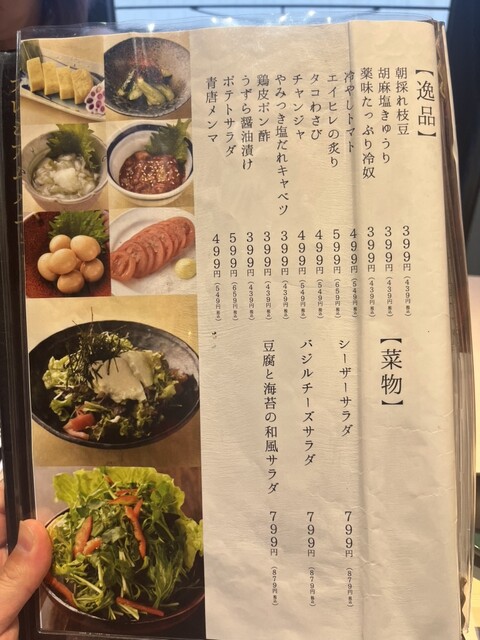 【逸品】
朝採れ枝豆 399円（439円税込）
胡麻塩きゅうり 399円（439円税込）
薬味たっぷり冷奴 399円（439円税込）
冷やしトマト 499円（549円税込）
エイヒレの炙り 599円（659円税込）
タコわさび 499円（549円税込）
チャンジャ 499円（549円税込）
やみつき塩だれキャベツ 399円（439円税込）
鶏皮ポン酢 399円（439円税込）
うずら醤油漬け 399円（439円税込）
ポテトサラダ 599円（659円税込）
青唐メンマ 499円（549円税込）
【菜物】
シーザーサラダ 799円（879円税込）
バジルチーズサラダ 799円（879円税込）
豆腐と海苔の和風サラダ 799円（879円税込）